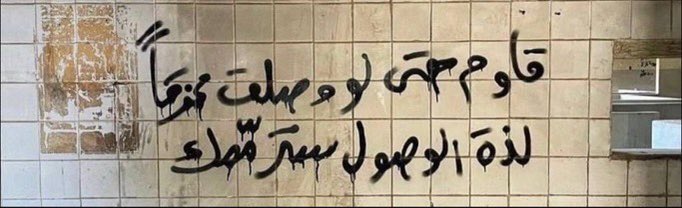 قاوم حتى لو وصلت ممزقاً
لذة الوصول سترمّمك